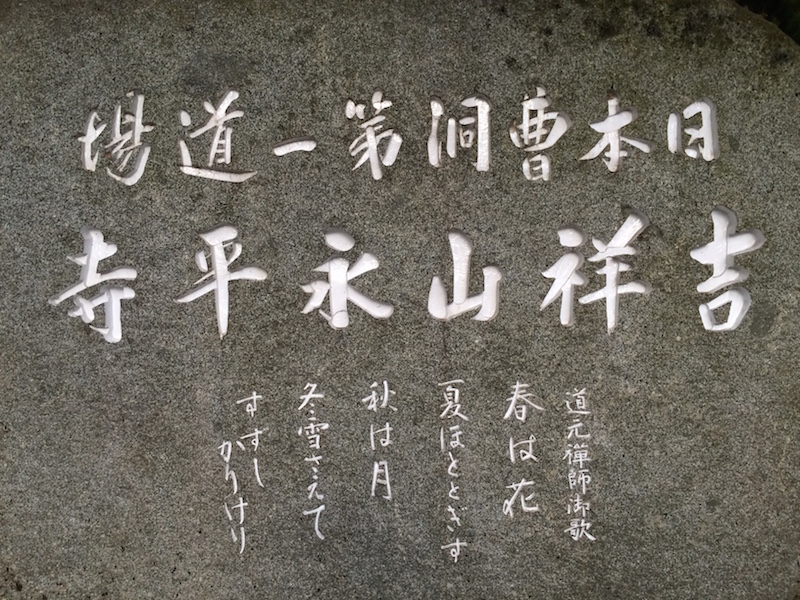 日本曹洞第一道場
吉祥山永平寺
道元禅師御歌
春は花
夏ほとゝぎす
秋は月
冬雪さえて
すずし
かりけり